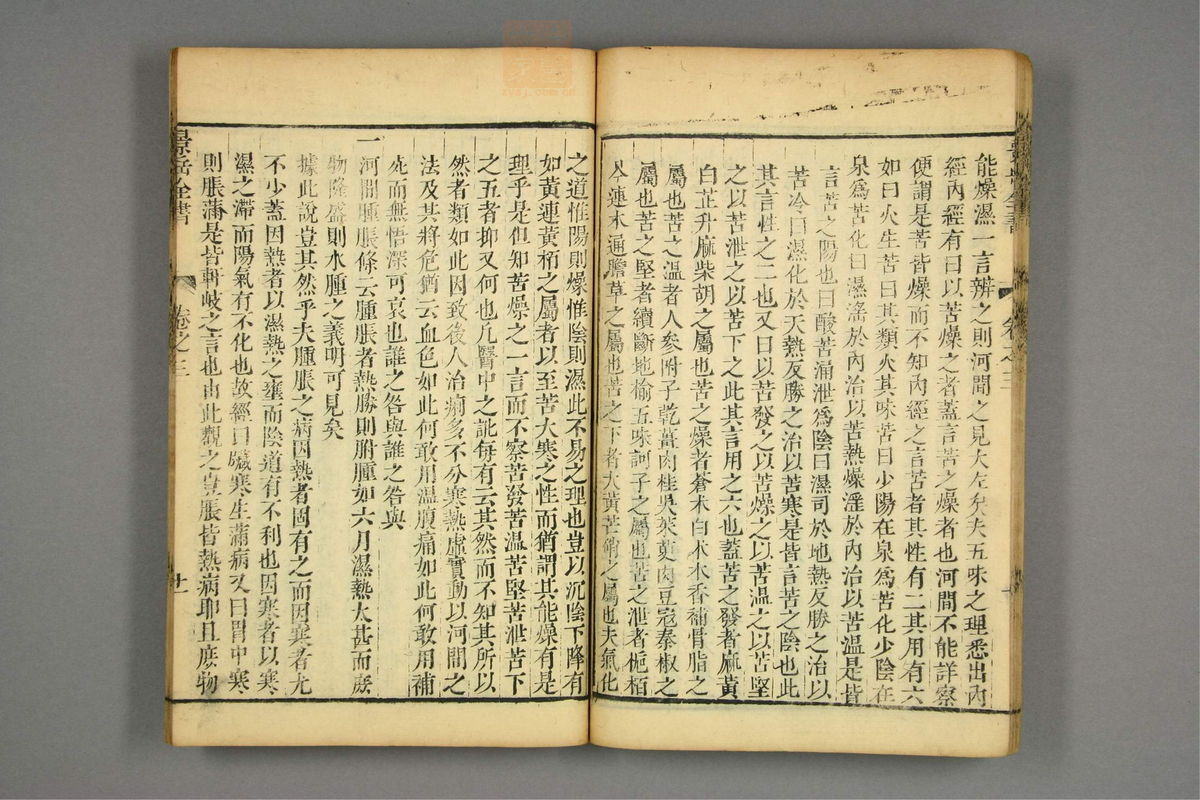 能燥濕一言辨之則河間之見大左矣夫五味之理悉出內
經內經有曰以苦燥之者蓋言苦之燥者也河間不能詳察
便謂是苦皆燥而不知內經之言苦者其性有二其用有六
如曰火生苦曰其類火其味苦曰少陽在泉爲苦化少陰在
泉爲苦化曰濕淫於內治以苦熱燥淫於內治以苦溫是皆
言苦之陽也曰酸苦涌泄爲陰曰濕司於地熱反勝之治以
苦冷曰濕化於天熱反勝之治以苦寒是皆言苦之陰也此
其言性之二也又曰以苦發之以苦燥之以苦溫之以苦堅
之以苦泄之以苦下之此其言用之六也蓋苦之發者麻黃
白芷升麻柴胡之屬也苦之燥者蒼朮白朮木香補骨脂之
屬也苦之溫者人參附子乾薑肉桂吳茱萸肉豆寇秦椒之
屬也苦之堅者續斷地榆五味訶子之屬也苦之泄者梔栢
芩連木通膽草之屬也苦之下者大黃芒硝之屬也夫氣化
之道惟陽則燥惟陰則濕此不易之理也豈以沉陰下降有
如黃連黃栢之屬者以至苦大寒之性而猶謂其能燥有是
理乎是但知苦燥之一言而不察苦發苦溫苦堅苦泄苦下
之五者抑又何也凡醫中之訛每有云其然而不知其所以
然者類如此因致後人治痢多不分寒熱虛實動以河間之
法及其將危猶云血色如此何敢用溫腹痛如此何敢用補
死而無悟深可哀也誰之咎與誰之咎與
一河間腫脹條云腫脹者熱勝則胕腫如六月濕熱太甚而庶
物隆盛則水腫之義明可見矣
據此說豈其然乎夫腫脹之病因熱者固有之而因寒者尤
不少蓋因熱者以濕熱之壅而陰道有不利也因寒者以寒
濕之滯而陽氣有不化也故經曰臟寒生滿病又曰胃中寒
則脹滿是皆軒岐之言也由此觀之豈脹皆熱病耶且庶物
景岳全書
卷之三
廿一